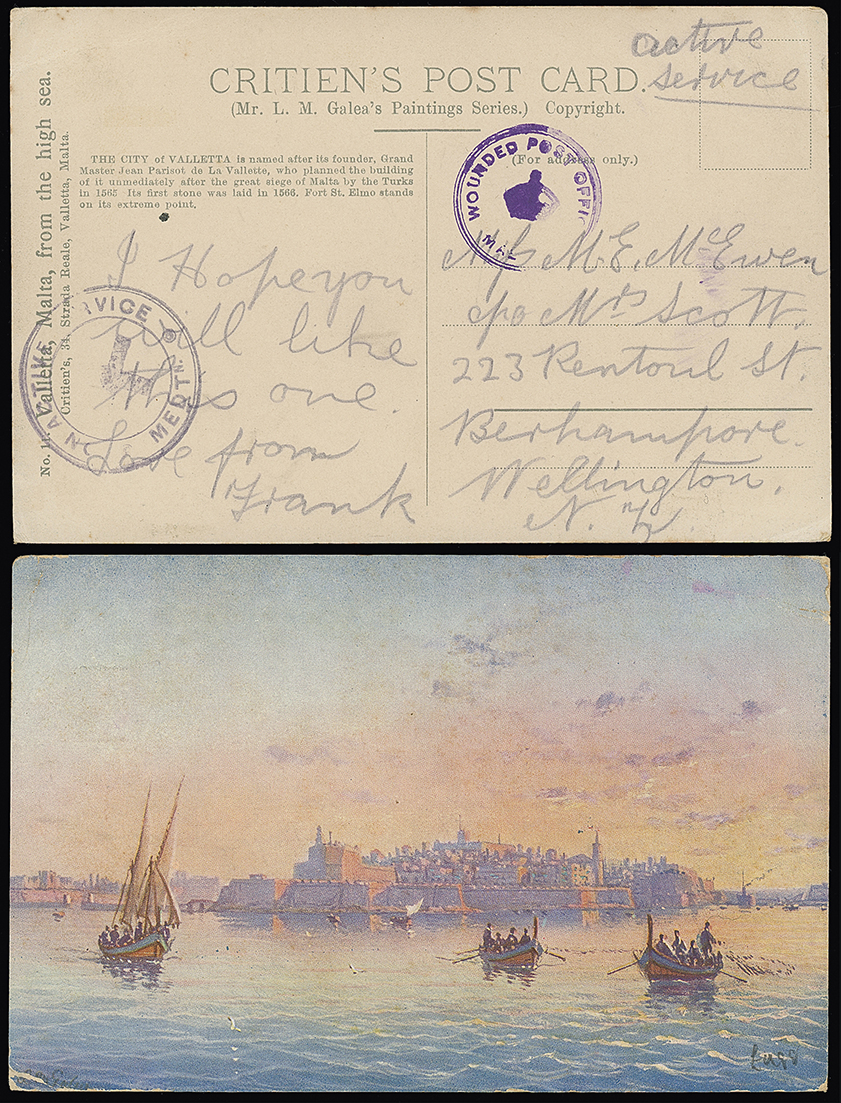 active
service
CRITIEN'S POST CARD.
(Mr. L. M. Galea's Paintings Series.) Copyright.
(For address only.)
THE CITY of VALLETTA is named after its founder, Grand
Master Jean Parisot de La Vallette, who planned the building
of it unmediately after the great siege of Malta by the Turks
in 1565 Its first stone was laid in 1566. Fort St. Elmo stands
on its extreme point.
Valletta, Malta, from the high sea.
Critien's, 34, Strada Reale, Valletta, Malta.
WOUNDED POST OFFI
MAL
RVICE
MEDTN.
I Hope you
will like
this one.
Love from
Frank
Miss M. E. McEwen
c/o Mrs Scott.
223 Rentoul St.
Berhampore.
Wellington.
N. Z.